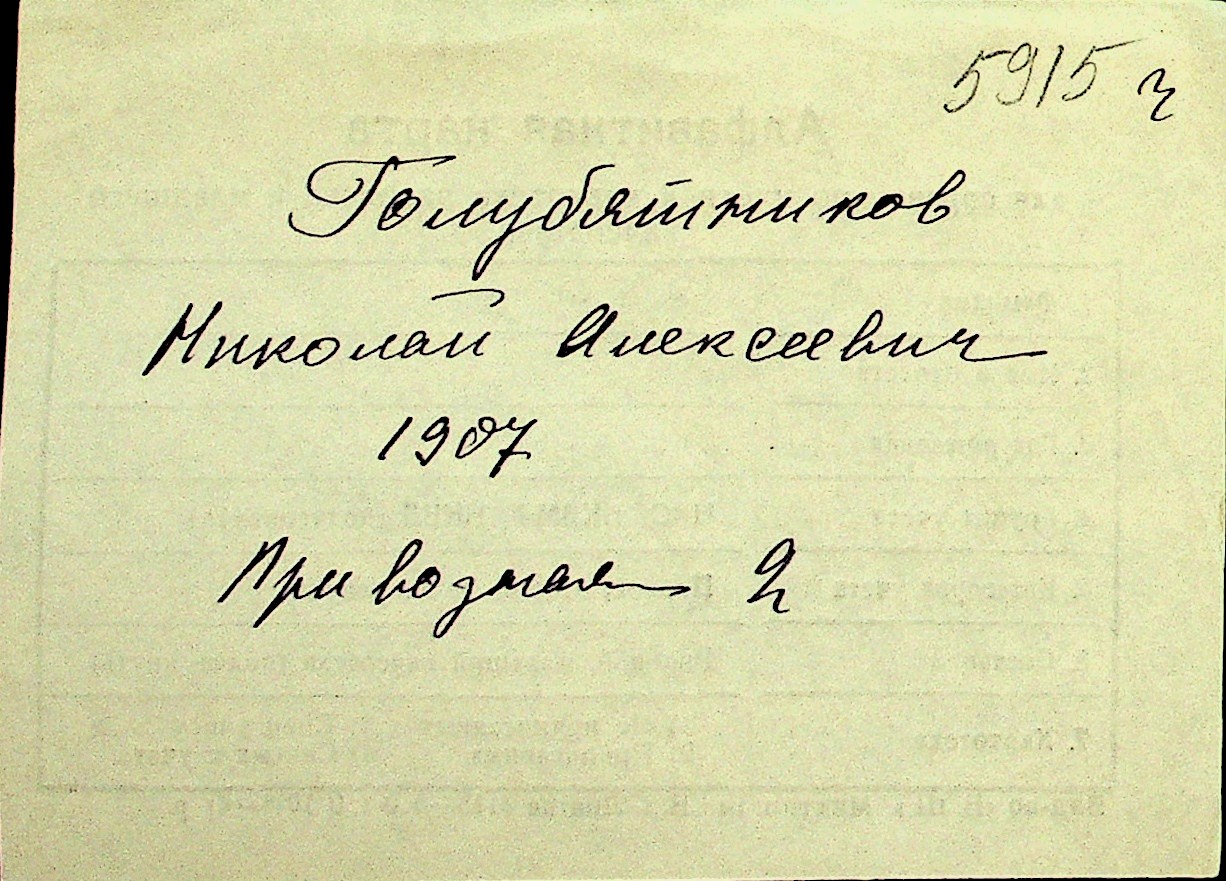 5915 ч
Голубятников
Николай Алексеевич
1907
Привозная 2